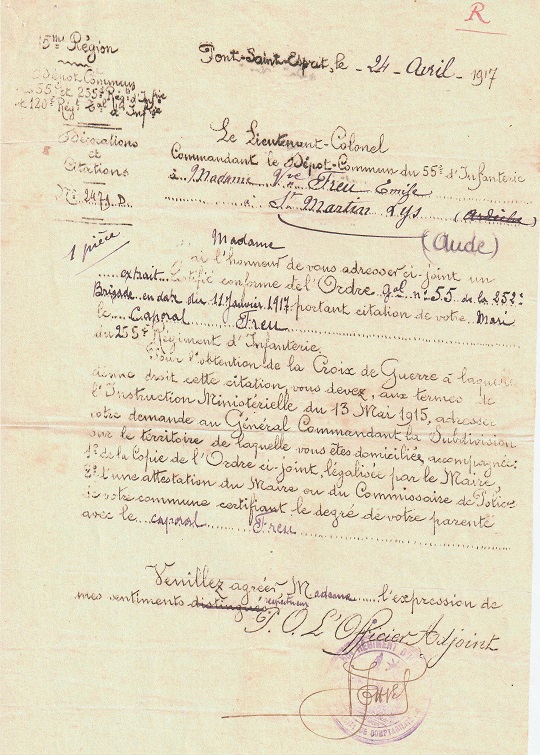 R
15me Région
Dépôt Commun
des 55e et 255e Régts d'Infie
et 120e Régt Tal d'Infie
Décorations
et
Citations
No 2479. D.
1 pièce
Pont-Saint-Esprit, le 24 Avril 1917
Le Lieutenant-Colonel
Commandant le Dépôt-Commun du 55e d'Infanterie
à Madame Vve Freu Emise
à St Martin Lys (Ardèche)
(Aude)
Madame
J'ai l'honneur de vous adresser ci-joint un
extrait certifié conforme de l'Ordre gal no 55 de la 252e
Brigade en date du 11 Janvier 1917 portant citation de votre Mari
le Caporal Freu
du 255e Régiment d'Infanterie.
Pour l'obtention de la Croix de Guerre à laquelle
donne droit cette citation, vous devez, aux termes de
l'Instruction Ministérielle du 13 Mai 1915, adresser
votre demande au Général Commandant la Subdivision
sur le territoire de laquelle vous êtes domiciliée, accompagnée:
1o de la Copie de l'Ordre ci-joint, légalisée par le Maire,
2o d'une attestation du Maire ou du Commissaire de Police
de votre commune certifiant le degré de votre parenté
avec le caporal Freu
Veuillez agréer, Madame l'expression de
mes sentiments distingués respectueux
P.O. L'Officier Adjoint
REGIMENT D'